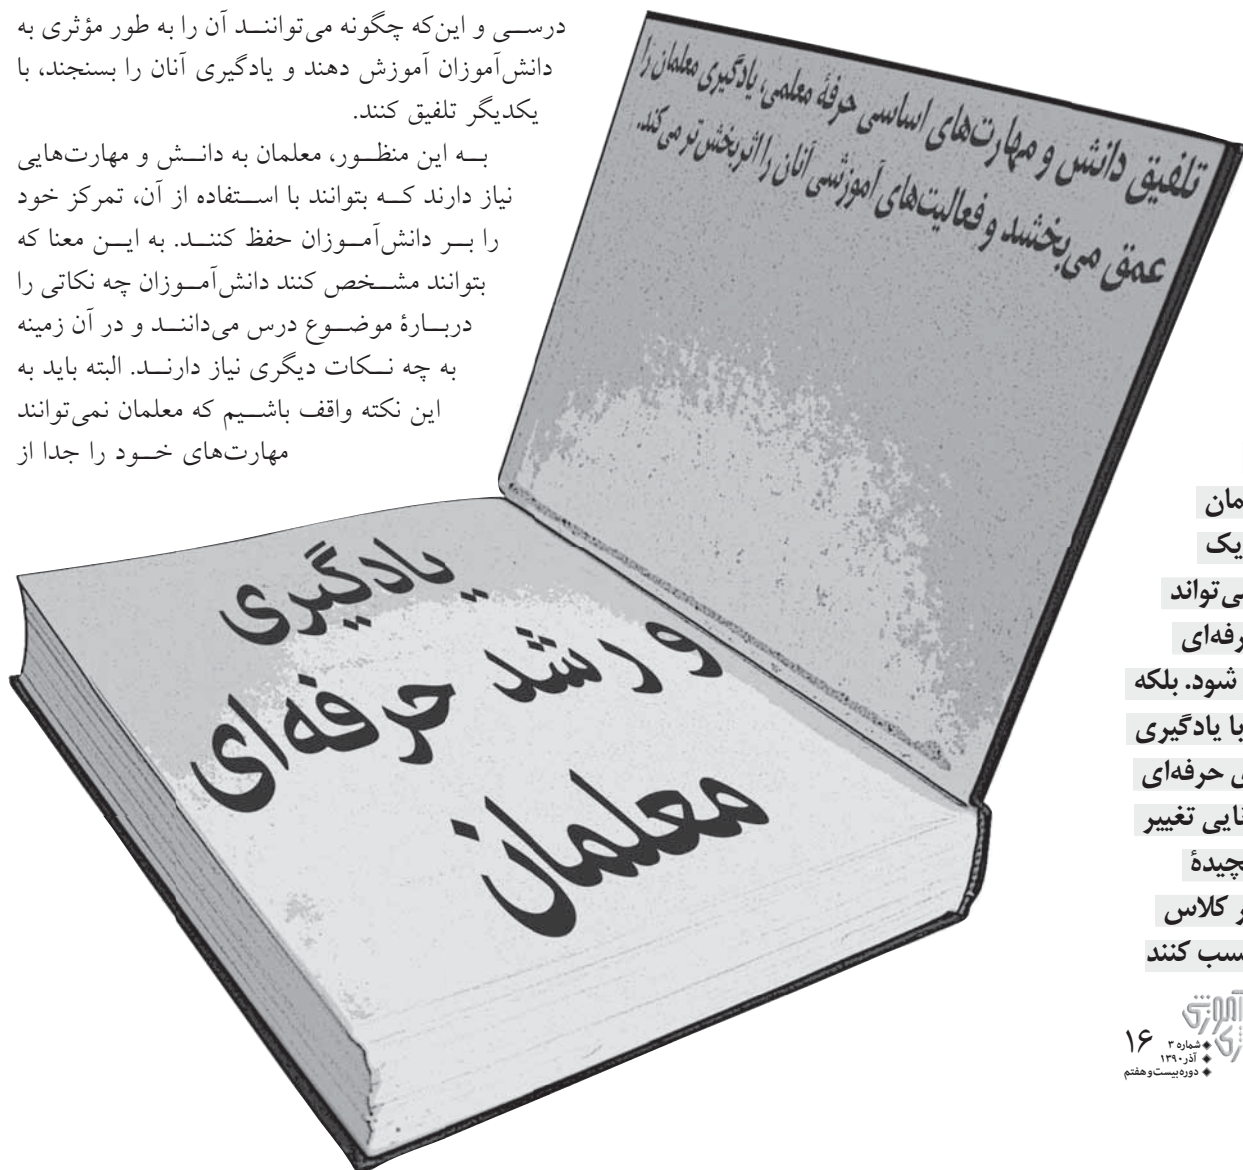 درسی و این‌که چگونه می‌توانند آن را به طور مؤثری به
دانش‌آموزان آموزش دهند و یادگیری آنان را بسنجند، با
یکدیگر تلفیق کنند.
به این منظور، معلمان به دانش و مهارت‌هایی
نیاز دارند که بتوانند با استفاده از آن، تمرکز خود
را بر دانش‌آموزان حفظ کنند. به این معنا که
بتوانند مشخص کنند دانش‌آموزان چه نکاتی را
دربارهٔ موضوع درس می‌دانند و در آن زمینه
به چه نکات دیگری نیاز دارند. البته باید به
این نکته واقف باشیم که معلمان نمی‌توانند
مهارت‌های خود را جدا از
تلفیق دانش و مهارت‌های اساسی حرفهٔ معلمی، یادگیری معلمان را
عمق می‌بخشد و فعالیت‌های آموزشی آنان را اثربخش‌تر می‌کند.
یادگیری
و رشد حرفه‌ای
معلمان
مان
یک
می‌تواند
رفه‌ای
شود. بلکه
با یادگیری
ی حرفه‌ای
نایی تغییر
چیدهٔ
ر کلاس
سب کنند
۱۶
شماره ۳
آذر ۱۳۹۰
دوره بیست‌و‌هفتم